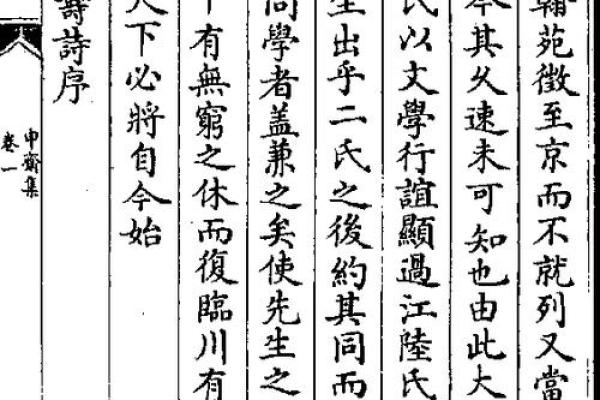 翰苑徵至京而不就列又當
其久速未可知也由此大
氏以文學行誼顯過江陸氏
出乎二氏之後約其同而
同學者蓋兼之矣使先生之
有無窮之休而復臨川有
天下必將自今始
壽詩序
申齋集
卷一